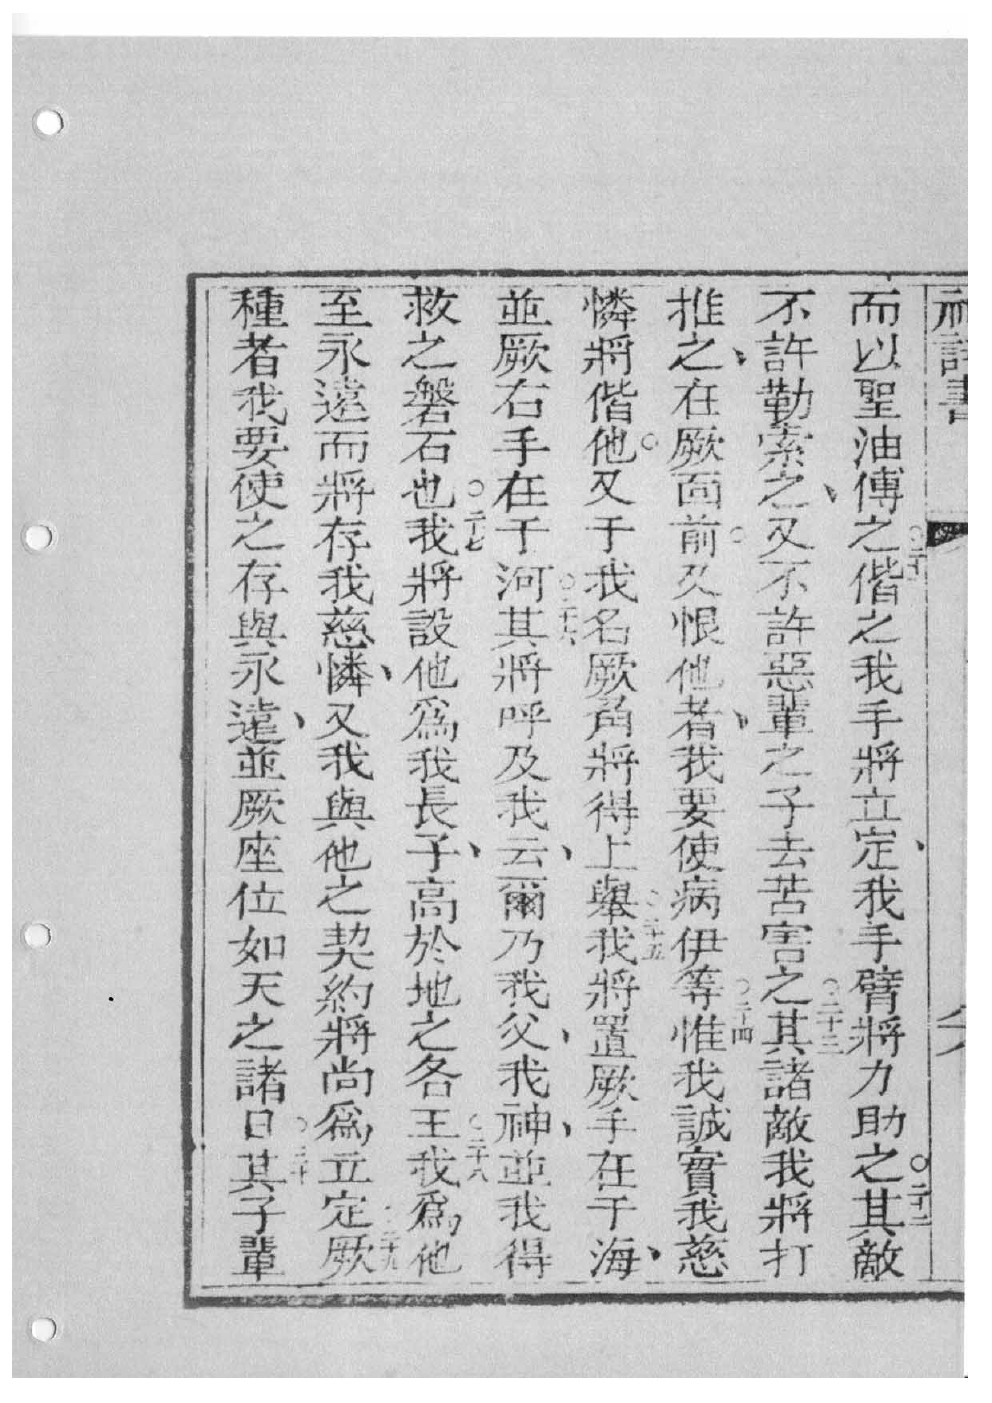 神詩書
而以聖油傅之○二十一偕之我手將立定、我手臂將力助之○二十二其敵
不許勒索之、又不許惡輩之子去苦害之○二十三其諸敵我將打
推之、在厥面前○又恨他者、我要使病伊等○二十四惟我誠實我慈
憐將偕他○又于我名厥角將得上舉○二十五我將置厥手在于海、
並厥右手在于河○二十六其將呼及我云、爾乃我父、我神、並我得
救之磐石也○二十七我將設他爲我長子、高於地之各王○二十八我爲他
至永遠而將存我慈憐、又我與他之契約將尚爲立定○二十九厥
種者我要使之存與永遠、並厥座位如天之諸日○三十其子輩